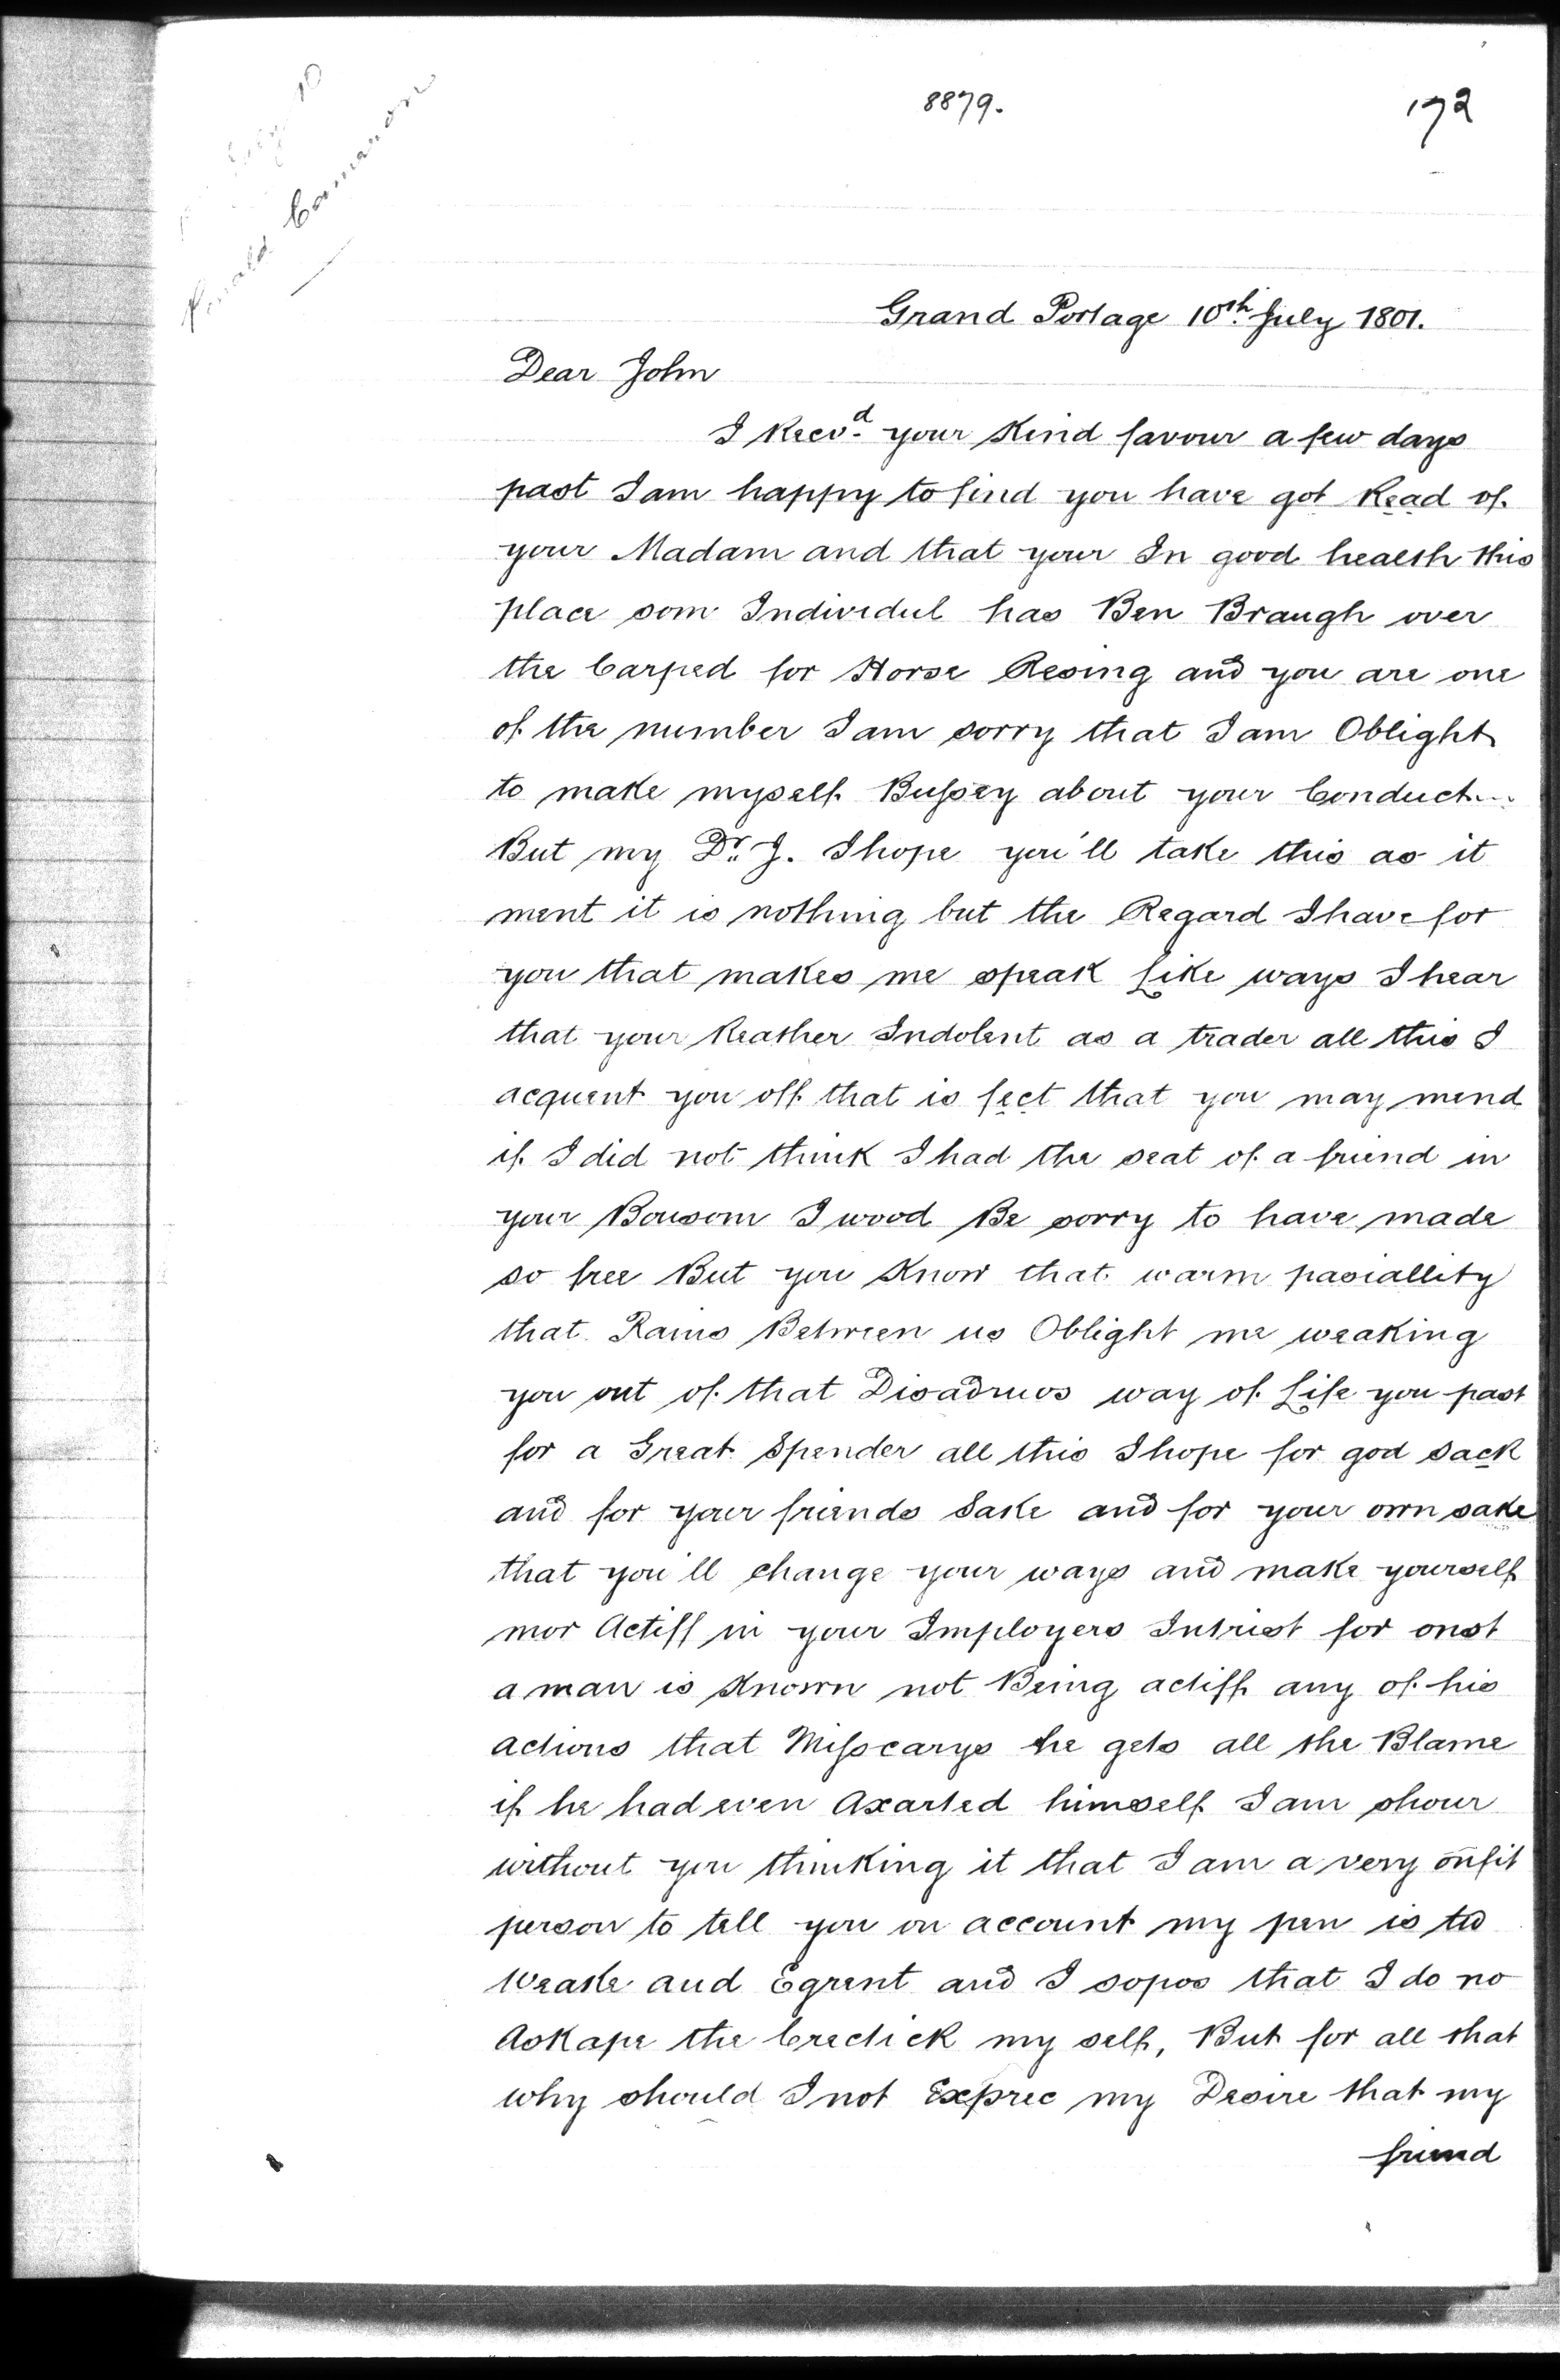 8879.
172
July 10
Cameron
Grand Portage 10th July 1801.
Dear John
I Recvd your Kind favour a few days
past I am happy to find you have got Read of
your Madam and that your In good health this
place som Individul has Ben Braugh over
the Carped for Horse Resing and you are one
of the number I am sorry that I am Oblight
to make myself Bussey about your Conduct...
But my Dr. J. I hope you'll take this as it
ment it is nothing but the Regard I have for
you that makes me speak Like ways I hear
that your Reather Indolent as a trader all this I
acquent you off that is fect that you may mend
if I did not think I had the seat of a friend in
your Bousom I wood Be sorry to have made
so free But you Know that warm pasiallity
that Rains Between us Oblight me weaking
you out of that Disadruos way of Life you past
for a Great Spender all this I hope for god sack
and for your friends Sake and for your own sake
that you'll change your ways and make yourself
mor Actiff in your Imployers Intrist for onst
a man is Known not Being actiff any of his
actions that Misscarys he gets all the Blame
if he had even Axarted himself I am shour
without you thinking it that I am a very onfit
person to tell you on account my pen is to
Weake and Egrent and I sopos that I do no
Askape the Creetick my self, But for all that
why should I not Exprec my Desire that my
friend